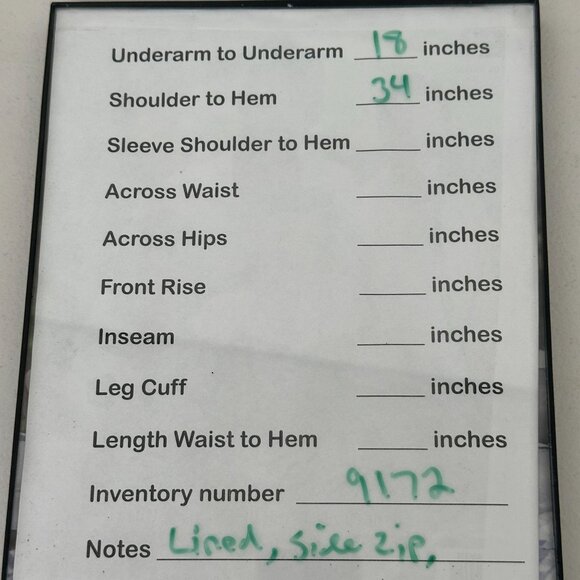 Underarm to Underarm 18 inches
Shoulder to Hem 34 inches
Sleeve Shoulder to Hem ______ inches
Across Waist ______ inches
Across Hips ______ inches
Front Rise ______ inches
Inseam ______ inches
Leg Cuff ______ inches
Length Waist to Hem ______ inches
Inventory number 9172
Notes Lined, Side zip,